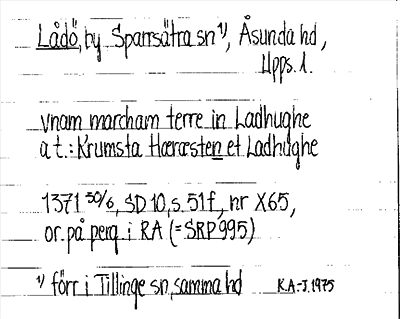 Lådö, by Sparrsätra sn ¹⁾, Åsunda hd,
Upps. l.
vnam marcham terre in Ladhughe
a t.: Krumsta Hæræsten et Ladhughe
1371 30/6, SD 10, s. 51 f, nr X65,
or. på perg. i RA (= SRP 995)
¹⁾ förr i Tillinge sn, samma hd K.A.-J. 1975